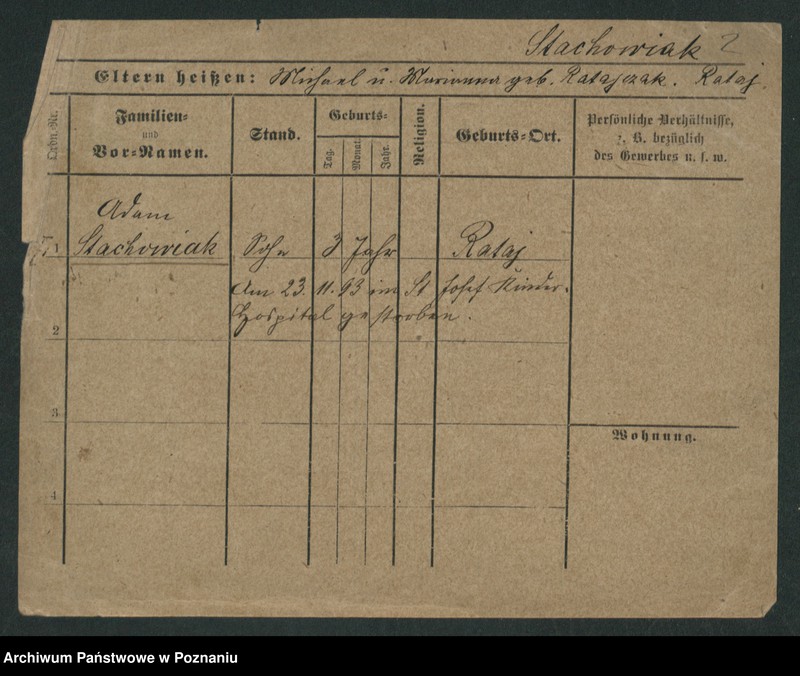 Stachowiak 2
Eltern heißen: Michael u. Marianna geb. Ratajczak. Rataj.
Ordn.-Nr.
Familien-
und
Vor-Namen.
Stand.
Geburts-
Tag.
Monat.
Jahr.
Religion.
Geburts-Ort.
Persönliche Verhältnisse,
z. B. bezüglich
des Gewerbes u. s. w.
Adam
1 Stachowiak Sohn 3 Jahr Rataj
Am 23. 11. 93 im St Josef Kinder-
Hospital gestorben.
2
3
Wohnung.
4
Archiwum Państwowe w Poznaniu